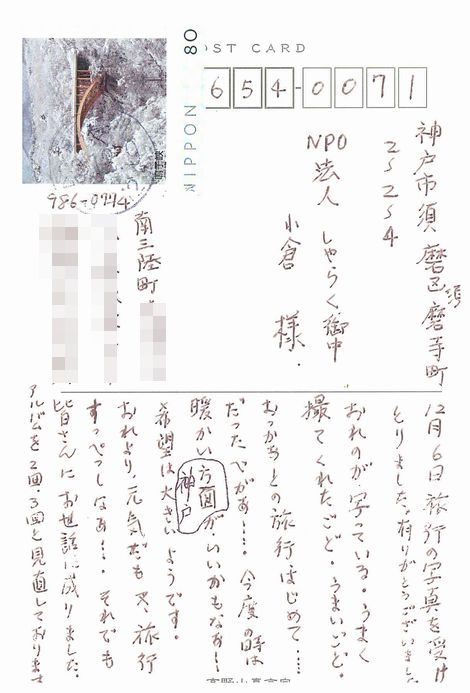 POST CARD
NIPPON 80
654-0071
神戸市須磨区須磨寺町
2~2~4
NPO法人 しゃらく御中
小倉 様.
986-0774
南三陸町
12月6日旅行の写真を受け
とりました。有りがとうございました
おれのが写っている。うまく
撮てくれたごど。うまいごど。
おっかあとの旅行はじめて……
だったべがぁ….今度の時は
暖かい方面がいいかもなぁ…
神戸
希望は大きいようです。
おれより、元気だもの、旅行
すっぺっしなぁ…。それでも
皆さんにお世話に成りました。
アルバムを2回.3回と見直しております